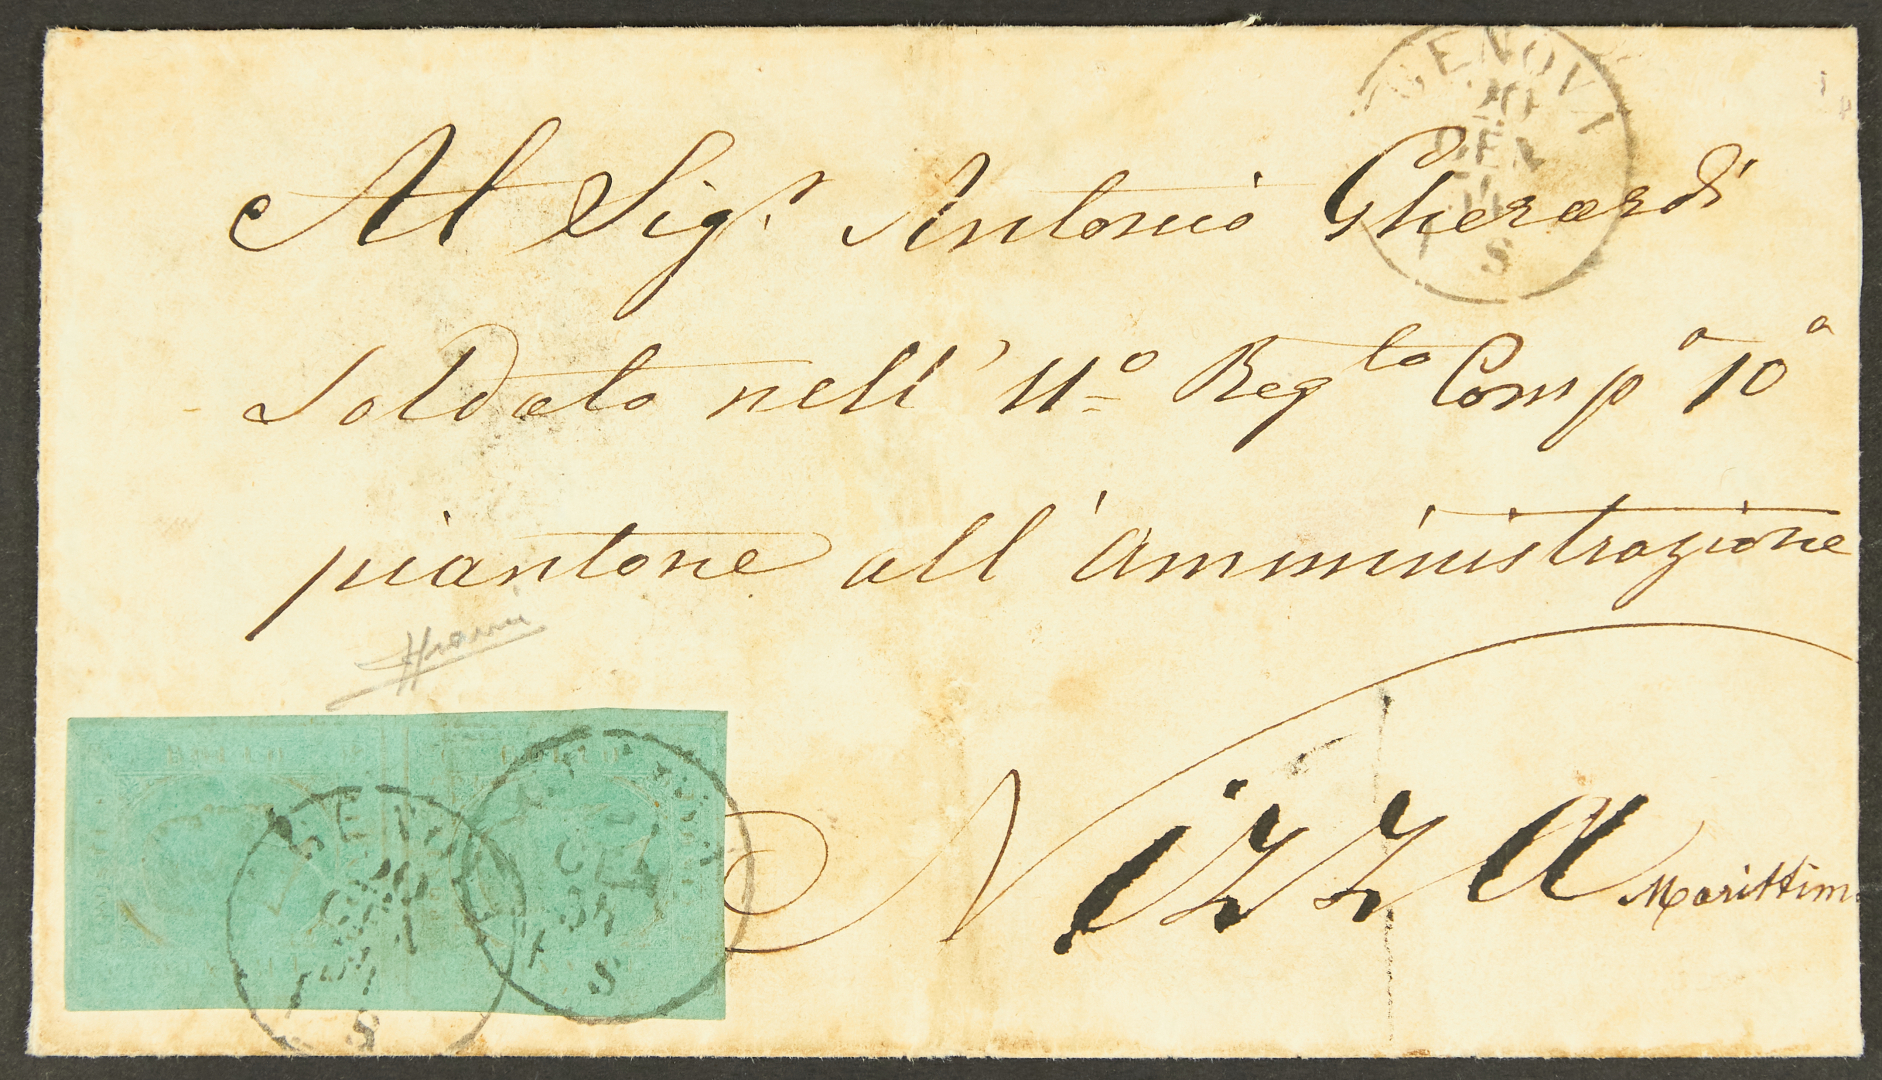 GENOVA
20
GEN
54
S
Al Sig.r Antonio Gherardi
Soldato nell' 11º Regto Compa 10a
piantone all' Amministrazione
Nizza Marittim
GENOVA
20
GEN
54
S
GEN
54
S